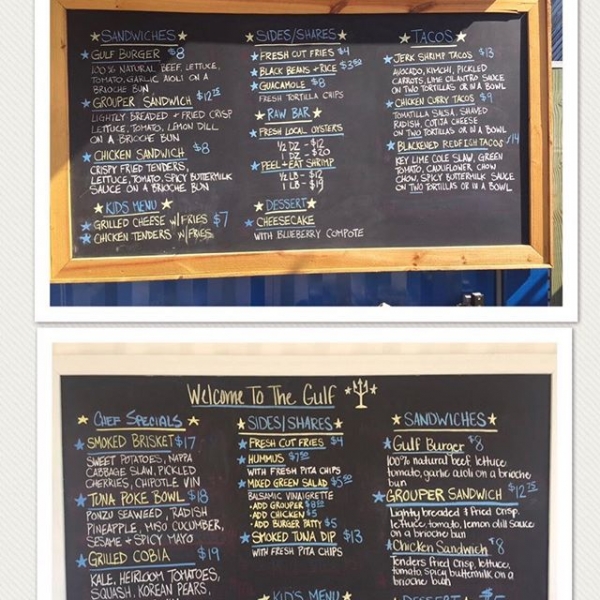 ★SANDWICHES★
★GULF BURGER $8
100% NATURAL BEEF, LETTUCE,
TOMATO, GARLIC AIOLI ON A
BRIOCHE BUN
★GROUPER SANDWICH $12.75
LIGHTLY BREADED + FRIED CRISP
LETTUCE, TOMATO, LEMON DILL
ON A BRIOCHE BUN
★CHICKEN SANDWICH $8
CRISPY FRIED TENDERS,
LETTUCE, TOMATO, SPICY BUTTERMILK
SAUCE ON A BRIOCHE BUN
★KIDS MENU★
★GRILLED CHEESE W/FRIES $7
★CHICKEN TENDERS W/FRIES
★SIDES/SHARES★
★FRESH CUT FRIES $4
★BLACK BEANS + RICE $3.50
★GUACAMOLE $8
FRESH TORTILLA CHIPS
★RAW BAR★
★FRESH LOCAL OYSTERS
1/2 DZ - $12
1 DZ - $20
★PEEL+EAT SHRIMP
1/2 LB - $12
1 LB - $19
★DESSERT★
★CHEESECAKE
WITH BLUEBERRY COMPOTE
★TACOS★
★JERK SHRIMP TACOS $13
AVOCADO, KIMCHI, PICKLED
CARROTS, LIME CILANTRO SAUCE
ON TWO TORTILLAS OR IN A BOWL
★CHICKEN CURRY TACOS $9
TOMATILLA SALSA, SHAVED
RADISH, COTIJA CHEESE
ON TWO TORTILLAS OR IN A BOWL
★BLACKENED REDFISH TACOS $14
KEY LIME COLE SLAW, GREEN
TOMATO, CAULIFLOWER CHOW
CHOW, SPICY BUTTERMILK SAUCE
ON TWO TORTILLAS OR IN A BOWL
Welcome To The Gulf
★CHEF SPECIALS★
★SMOKED BRISKET $17
SWEET POTATOES, NAPPA
CABBAGE SLAW, PICKLED
CHERRIES, CHIPOTLE VIN
★TUNA POKE BOWL $18
PONZU SEAWEED, RADISH
PINEAPPLE, MISO CUCUMBER,
SESAME + SPICY MAYO
★GRILLED COBIA $19
KALE, HEIRLOOM TOMATOES,
SQUASH, KOREAN PEARS,
★SIDES/SHARES★
★FRESH CUT FRIES $4
★HUMMUS $7.50
WITH FRESH PITA CHIPS
★MIXED GREEN SALAD $5.50
BALSAMIC VINAIGRETTE
·ADD GROUPER
·ADD CHICKEN $5
·ADD BURGER PATTY $5
★SMOKED TUNA DIP $13
WITH FRESH PITA CHIPS
KID'S MENU
★SANDWICHES★
★Gulf Burger $8
100% natural beef, lettuce
tomato, garlic aioli on a brioche
bun
★GROUPER SANDWICH $12.75
Lightly breaded & Fried Crisp,
lettuce, tomato, lemon dill sauce
on a brioche bun
★Chicken Sandwich $8
Tenders fried Crisp, lettuce,
tomato, spicy buttermilk on a
brioche bun
★DESSERT★